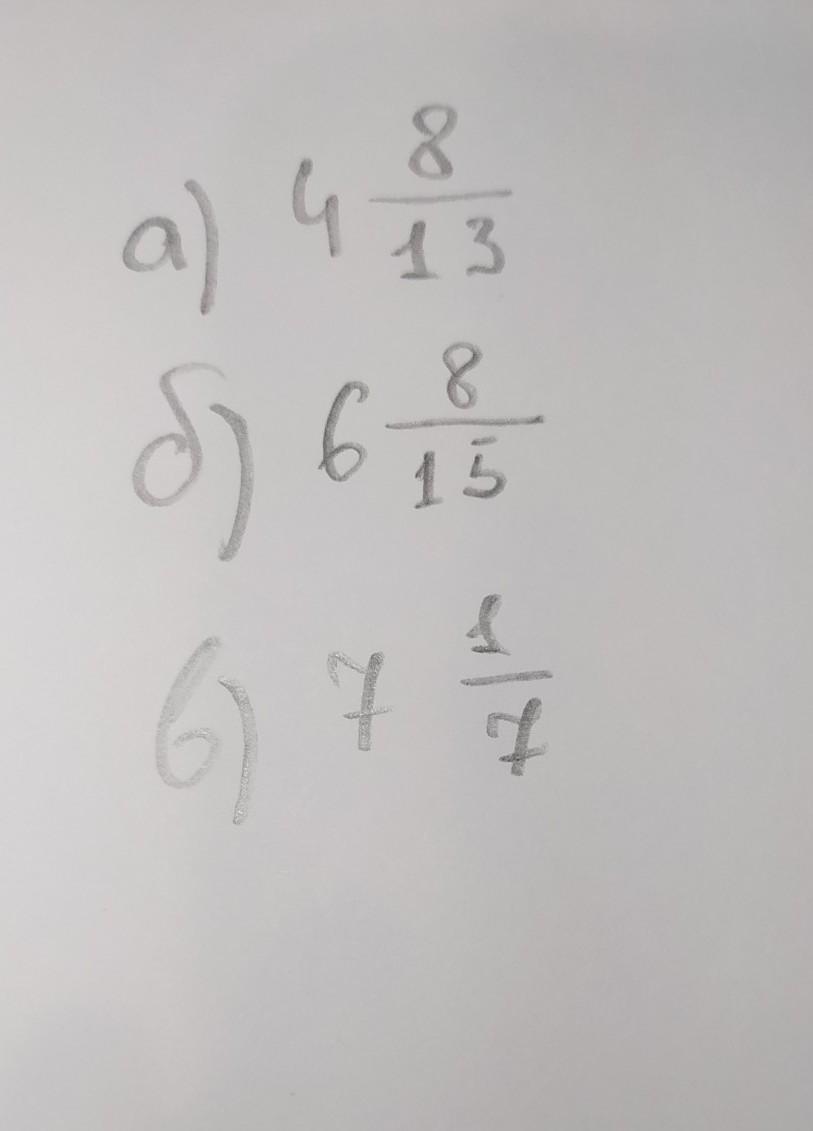 а) 4 8/13
б) 6 8/15
в) 7 1/7